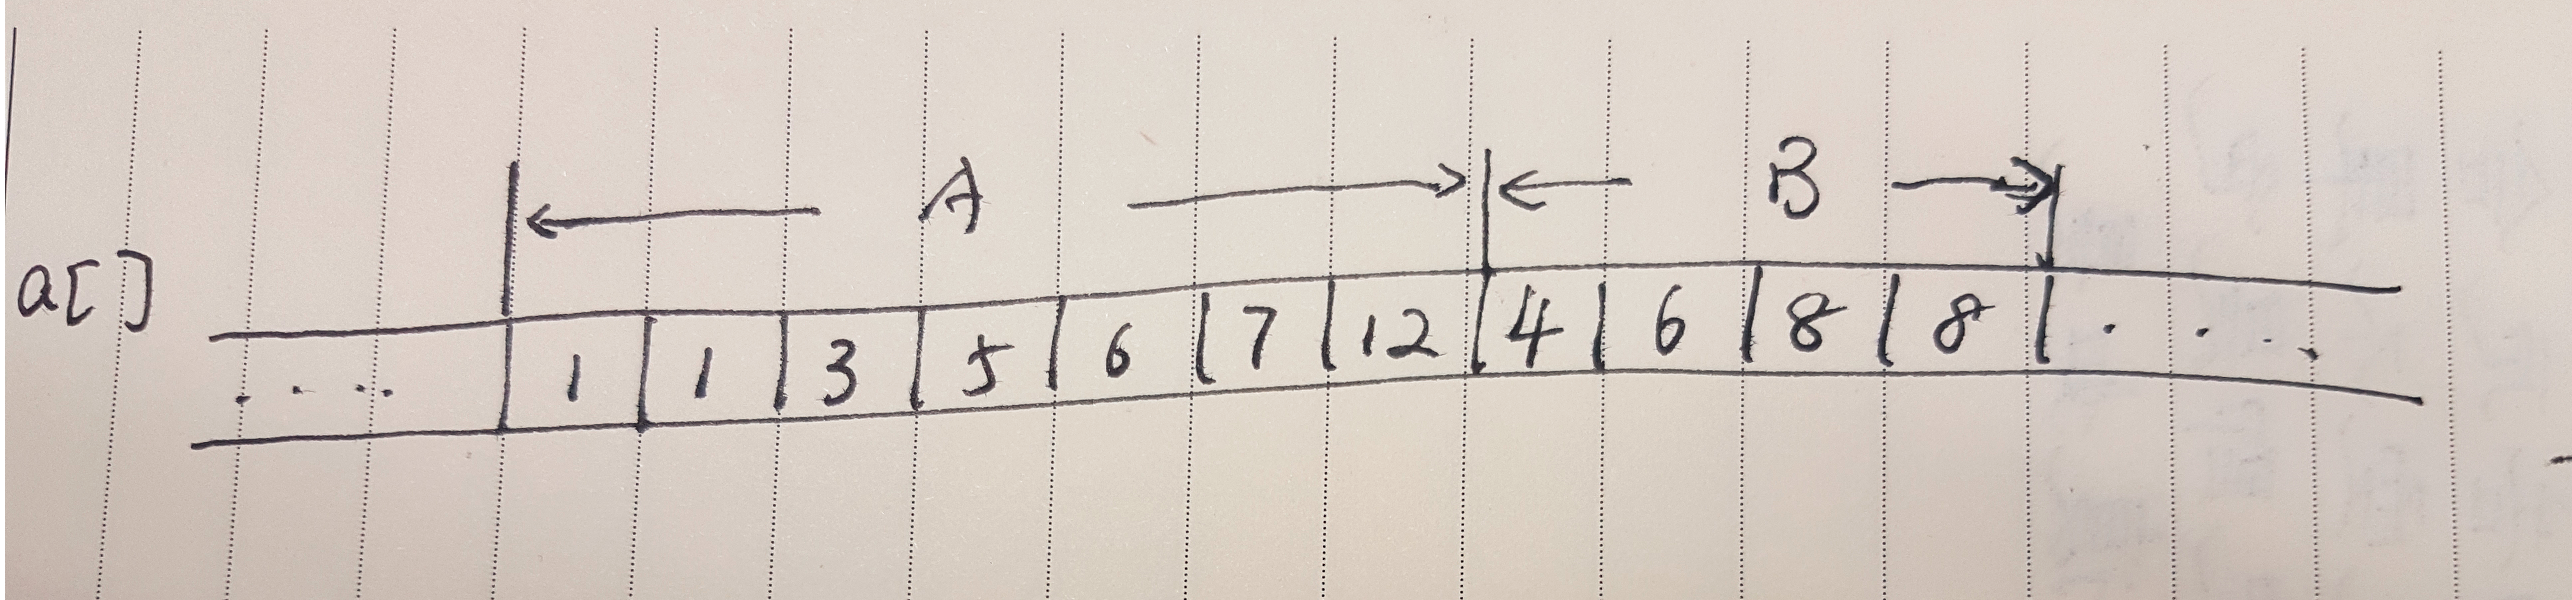 A B
a[] .... 1 1 3 5 6 7 12 4 6 8 8 ....